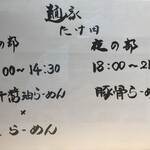 麺家
たけ田
の部
夜の部
:00〜14:30
18:00〜2
干醤油らーめん
豚骨らーめ
×
らーめん